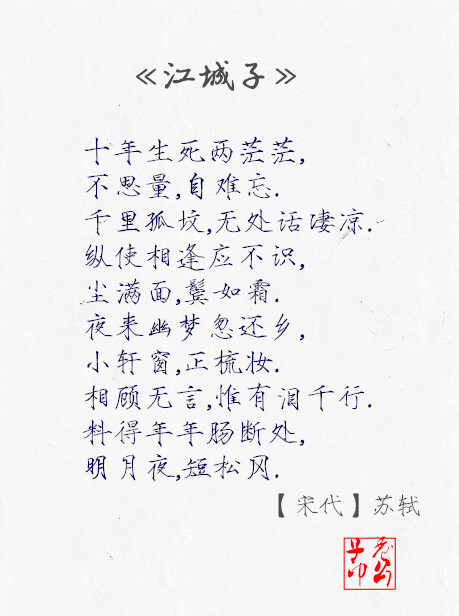 《江城子》
十年生死两茫茫,
不思量,自难忘.
千里孤坟,无处话凄凉.
纵使相逢应不识,
尘满面,鬓如霜.
夜来幽梦忽还乡,
小轩窗,正梳妆.
相顾无言,惟有泪千行.
料得年年肠断处,
明月夜,短松冈.
【宋代】苏轼